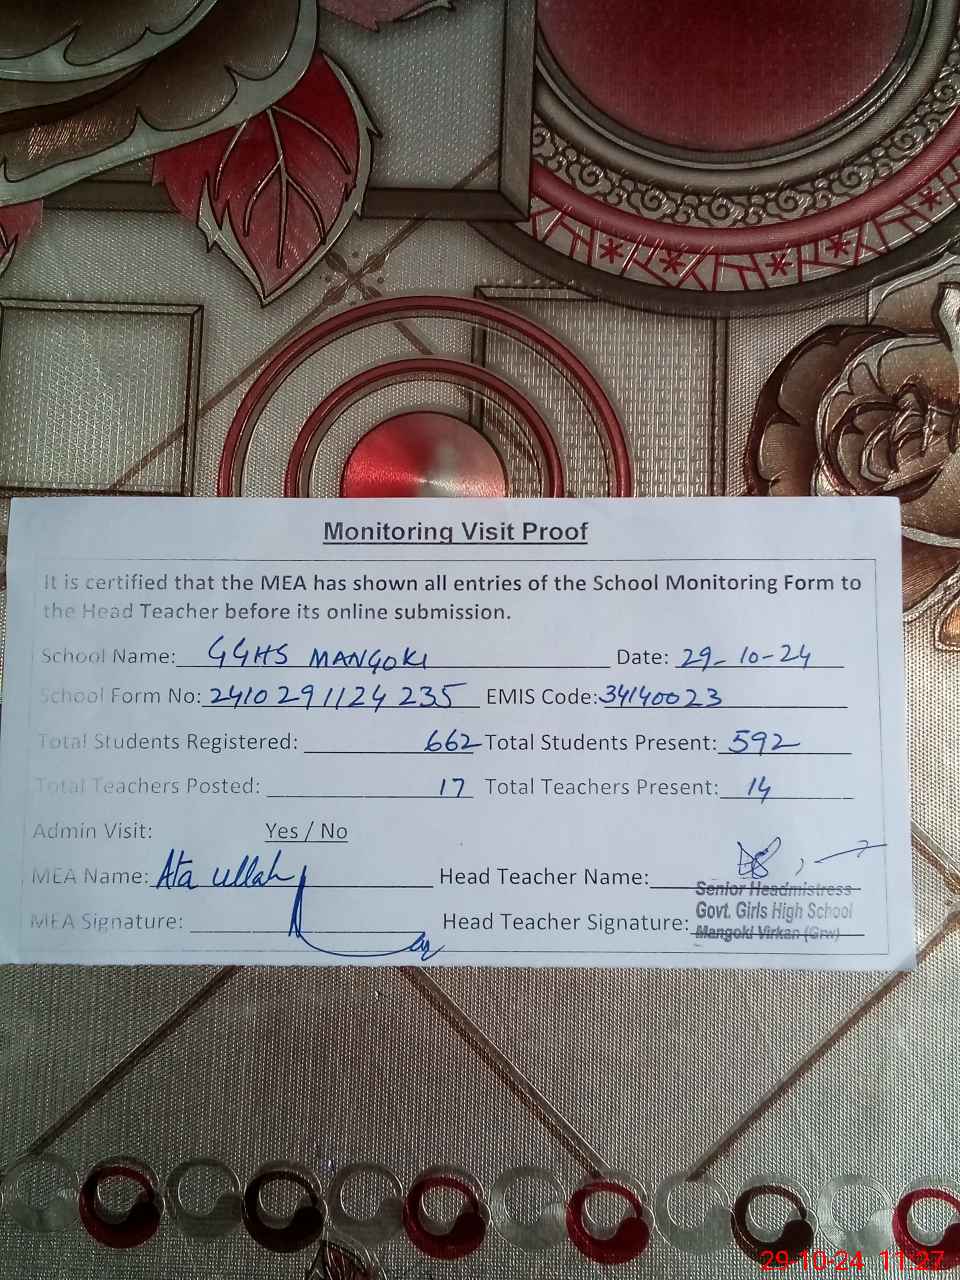 Monitoring Visit Proof
It is certified that the MEA has shown all entries of the School Monitoring Form to
the Head Teacher before its online submission.
School Name: GGHS MANGOKI Date: 29-10-24
School Form No: 2410 291124 235 EMIS Code: 34140023
Total Students Registered: 662 Total Students Present: 592
Total Teachers Posted: 17 Total Teachers Present: 14
Admin Visit: Yes / No
MEA Name: Ata ullah Head Teacher Name:
Senior Headmistress
MEA Signature: Head Teacher Signature: Govt. Girls High School
Mangoki Virkan (Grw)
29-10-24 11:27